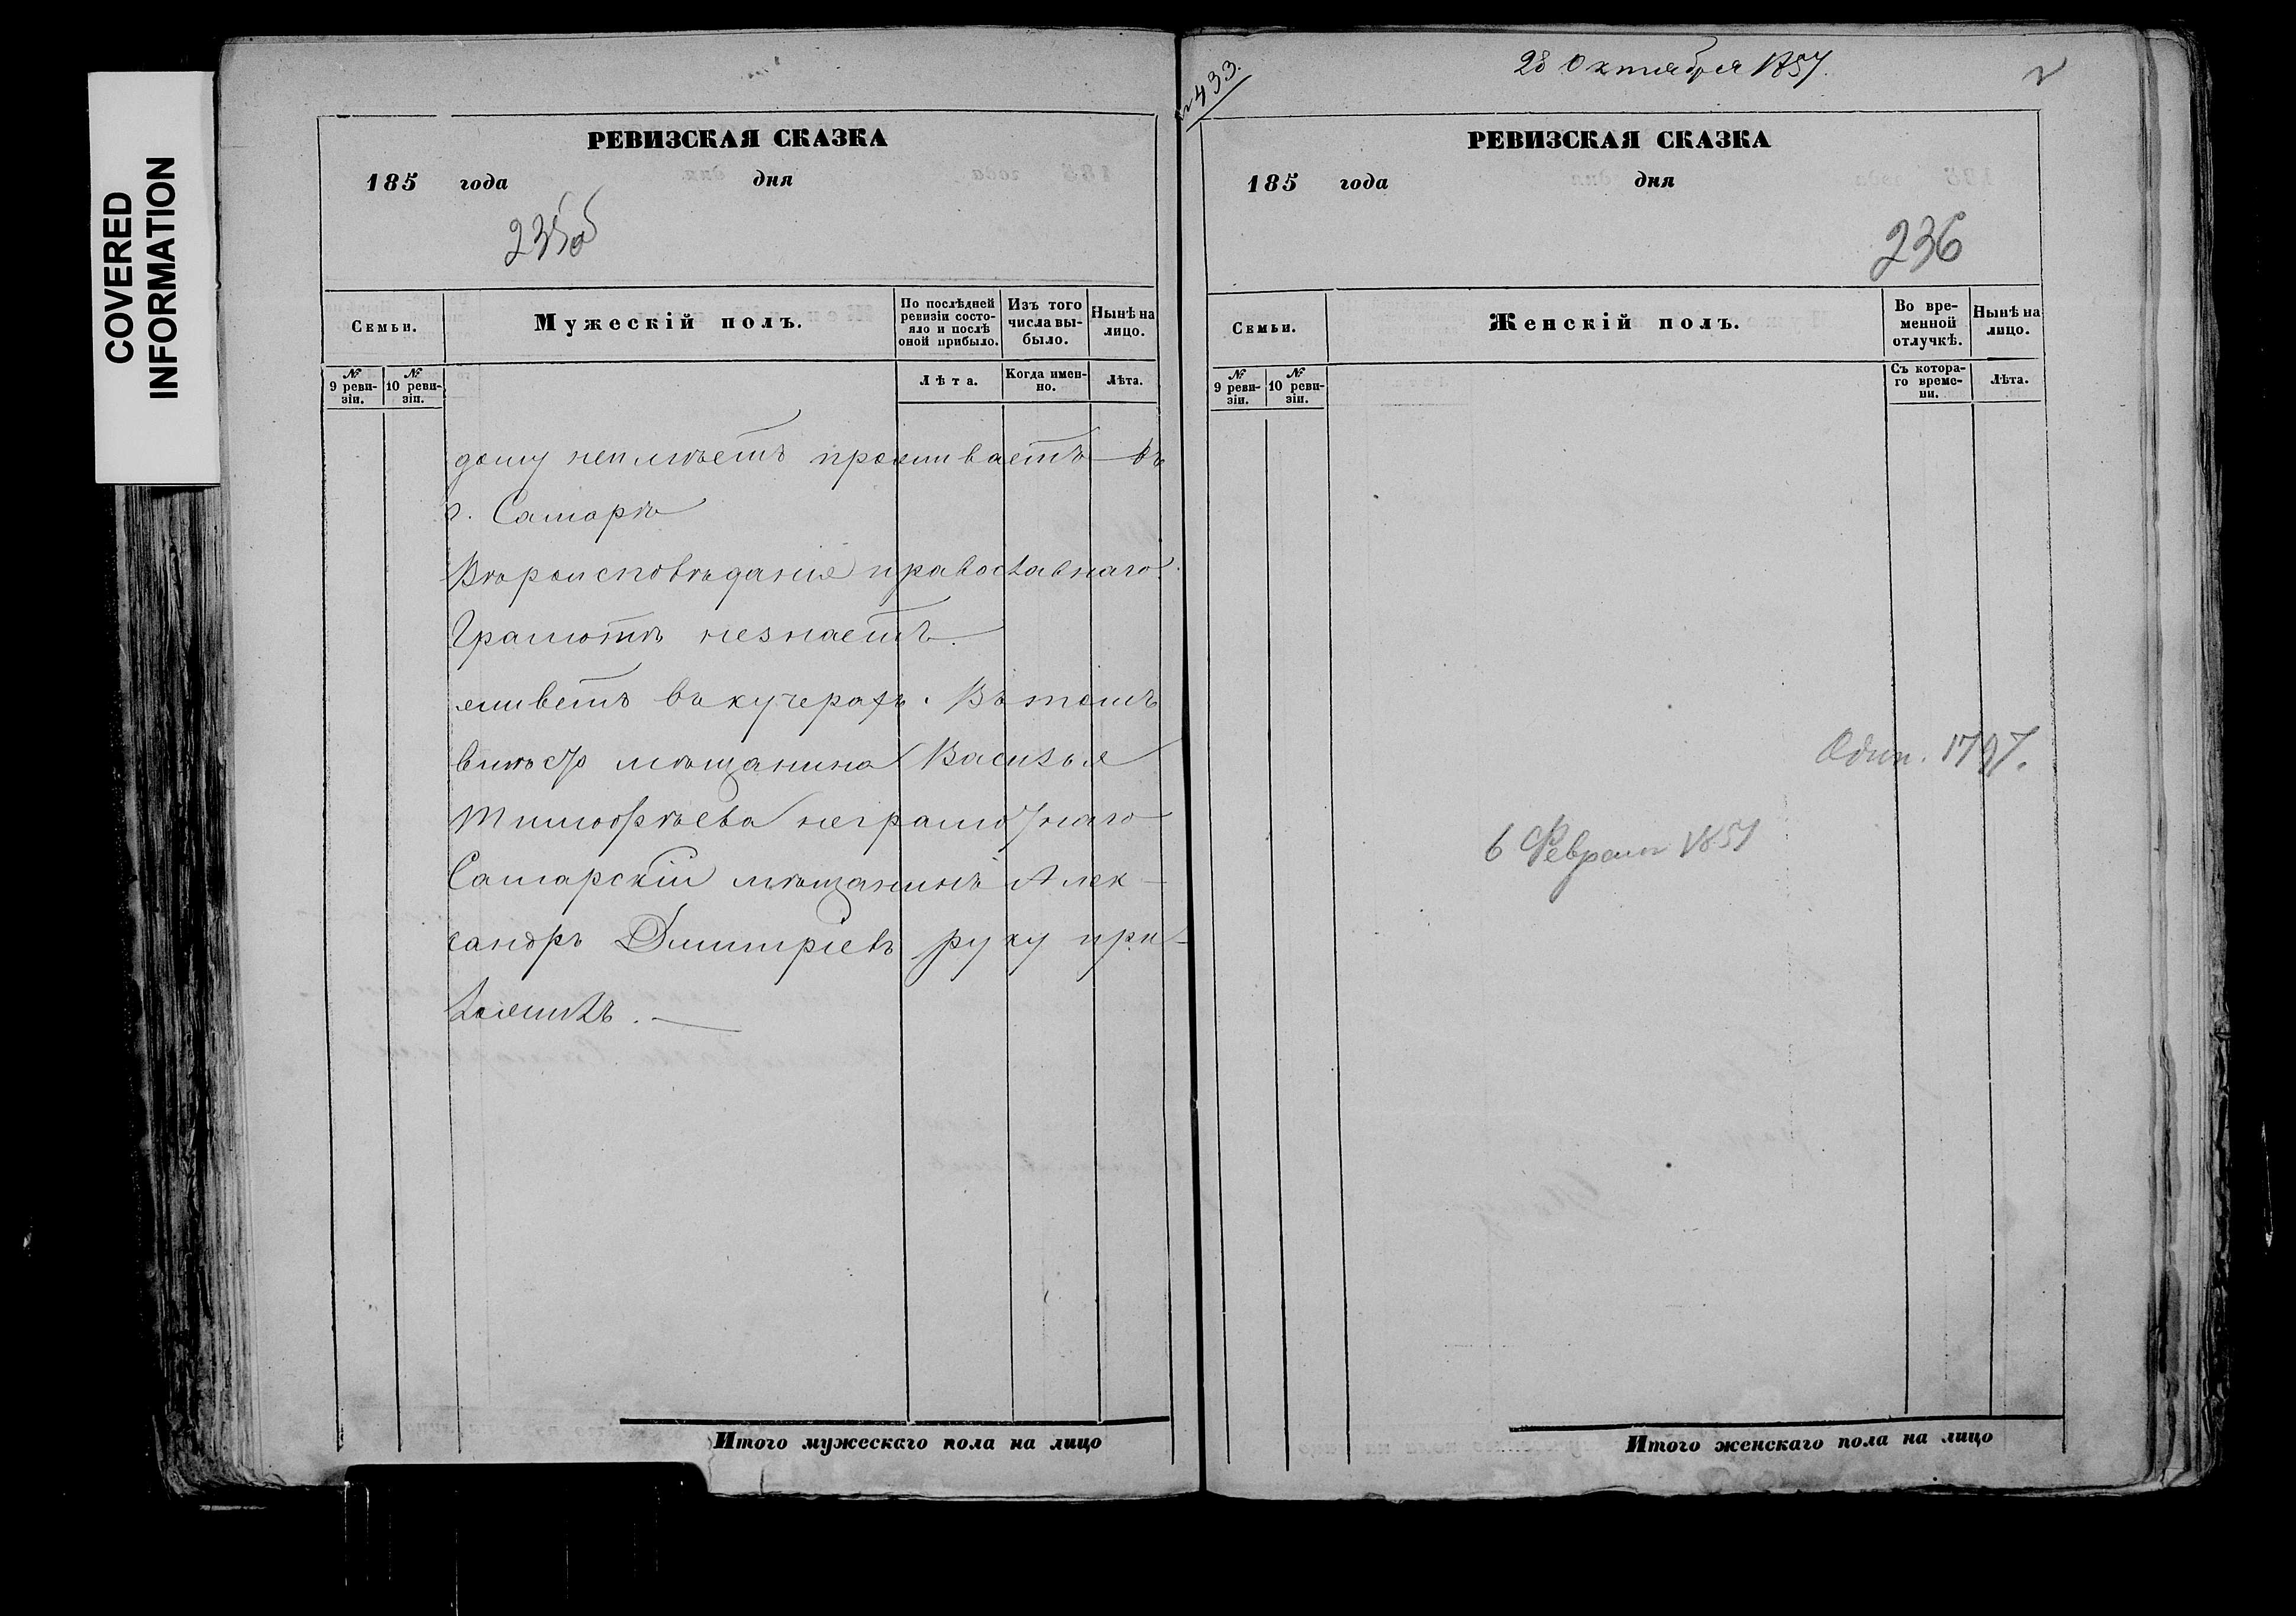 COVERED
INFORMATION
РЕВИЗСКАЯ СКАЗКА
185 года дня
235об
Семьи.
Мужескій полъ.
По послѣдней ревизіи состо-
яло и послѣ
оной прибыло.
Изъ того
числа вы-
было.
Нынѣ на
лицо.
№
9 реви-
зіи.
№
10 реви-
зіи.
Лѣта.
Когда имен-
но.
Лѣта.
дому неимѣетъ проживаетъ въ
г. Самарѣ
Вѣроисповѣданія православнаго.
Грамотѣ незнаетъ.
живетъ въ кучерахъ. Въ томъ
вмѣсто мѣщанина Василья
Тимофѣева неграмотнаго
Самарскій мѣщанинъ Алек-
сандръ Дмитріевъ руку при-
ложилъ.
Итого мужескаго пола на лицо
№ 433.
28 Октября 1857.
РЕВИЗСКАЯ СКАЗКА
185 года дня
236
Семьи.
Женскій полъ.
Во вре-
менной
отлучкѣ.
Нынѣ на
лицо.
№
9 реви-
зіи.
№
10 реви-
зіи.
Съ котора-
го време-
ни.
Лѣта.
1797.
6 Февраля 1857
Итого женскаго пола на лицо